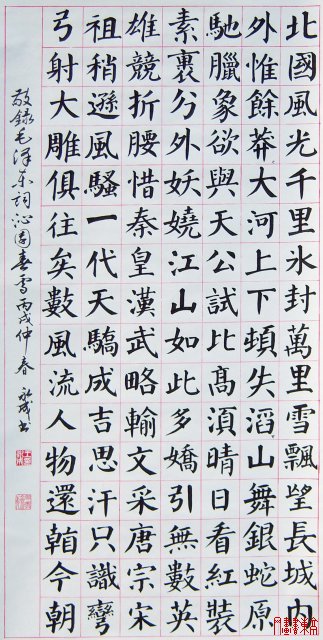 北國風光千里氷封萬里雪飄望長城内
外惟餘莽大河上下頓失滔山舞銀蛇原
馳臘象欲與天公試比髙湏晴日看紅裝
素裹分外妖嬈江山如此多嬌引無數英
雄競折腰惜秦皇漢武略輸文采唐宗宋
祖稍遜風騷一代天驕成吉思汗只識彎
弓射大雕俱往矣數風流人物還今朝
敬録毛泽东词沁园春雪丙戌仲春 永成书